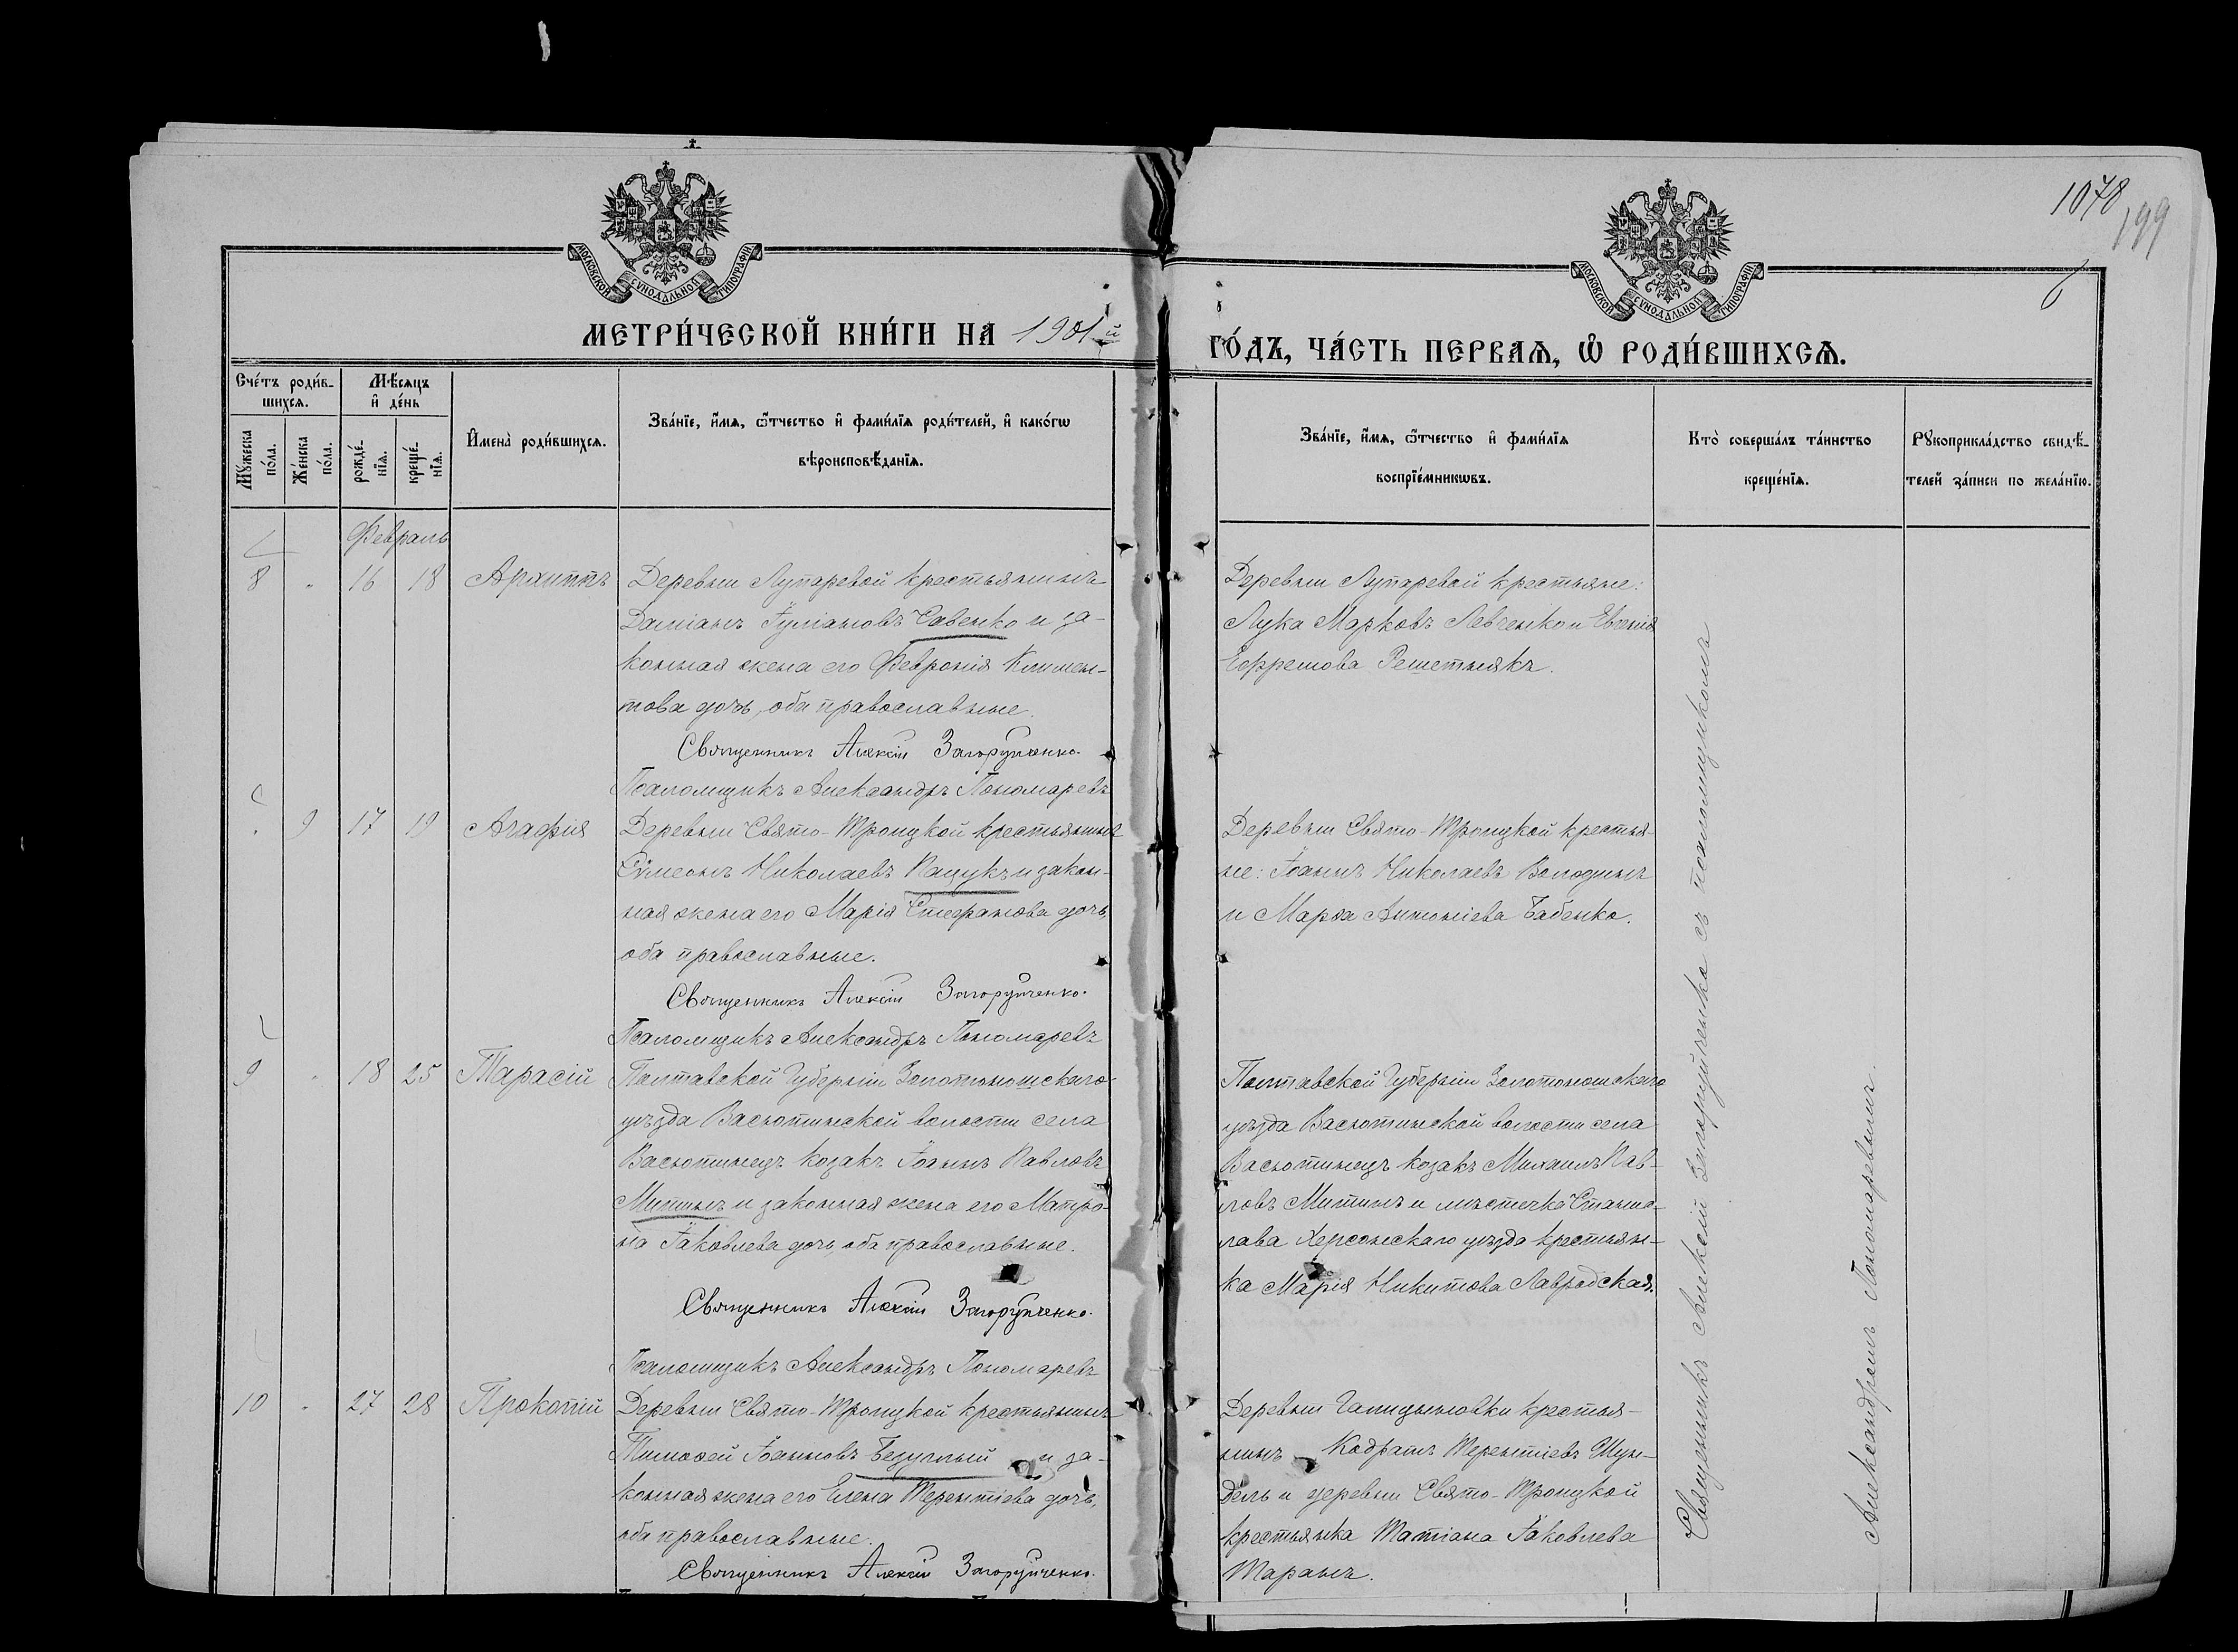 1078
199
6
МОСКОВСКОЙ СѴНОДАЛЬНОЙ ТИПОГРАФІИ
МОСКОВСКОЙ СѴНОДАЛЬНОЙ ТИПОГРАФІИ
МЕТРИ́ЧЕСКОЙ КНИ́ГИ НА 1901й
ГО́ДЪ, ЧА́СТЬ ПЕРВАѦ, Ѡ РОДИ́ВШИХСѦ.
Сче́тъ роди́в-
шихсѧ.
Мѣ́сѧцъ
и҆ де́нь
Мꙋ́жеска
по́ла.
Же́нска
по́ла.
рожде́-
нїѧ.
креще́-
нїѧ.
И҆мена̀ роди́вшихсѧ.
Зва́нїе, и҆́мѧ, ѻ҆́тчество и҆ фами́лїѧ роди́телей, и҆ како́гѡ
вѣроисповѣ́данїѧ.
Зва́нїе, и҆́мѧ, ѻ҆́тчество и҆ фами́лїѧ
воспрїе́мникѡвъ.
Кто̀ соверша́лъ та́инство
креще́нїѧ.
Рꙋкоприкла́дство свидѣ́-
телей за́писи по жела́нїю.
Февраль
8 " 16 18 Архиппъ
Деревни Лупаревой крестьянинъ
Даміанъ Іуліановъ Савенко и за-
конная жена его Февронія Климен-
това дочь, оба православные.
Священникъ Алексій Загоруйченко.
Псаломщикъ Александръ Пономаревъ
Деревни Лупаревой крестьяне:
Лука Марковъ Левченко и Евгенія
Ефремова Решетнякъ.
" 9 17 19 Агафія
Деревни Свято-Троицкой крестьянинъ
Сѵмеонъ Николаевъ Пащукъ и закон-
ная жена его Марія Стефанова дочь,
оба православные.
Священникъ Алексій Загоруйченко.
Псаломщикъ Александръ Пономаревъ
Деревни Свято-Троицкой крестья-
не: Іоаннъ Николаевъ Володинъ
и Марѳа Антоніева Бабенко.
9 " 18 25 Тарасій
Полтавской Губерніи Золотоношскаго
уѣзда Васютинской волости села
Васютинецъ козакъ Іоаннъ Павловъ
Митинъ и законная жена его Матро-
на Іаковлева дочь, оба православные.
Священникъ Алексій Загоруйченко.
Псаломщикъ Александръ Пономаревъ
Полтавской Губерніи Золотоношскаго
уѣзда Васютинской волости села
Васютинецъ козакъ Михаилъ Пав-
ловъ Митинъ и мѣстечка Станис-
лава Херсонскаго уѣзда крестьян-
ка Марія Никитова Лавродская.
10 " 27 28 Прокопій
Деревни Свято-Троицкой крестьянинъ
Тимоѳей Іоанновъ Безуглый и за-
конная жена его Елена Терентіева дочь,
оба православные.
Священникъ Алексій Загоруйченко.
Деревни Галицыновки крестья-
нинъ Кодратъ Терентіевъ Шун-
дель и деревни Свято-Троицкой
крестьянка Татіана Іаковлева
Таранъ.
Священникъ Алексій Загоруйченко съ псаломщикомъ
Александромъ Пономаревымъ.